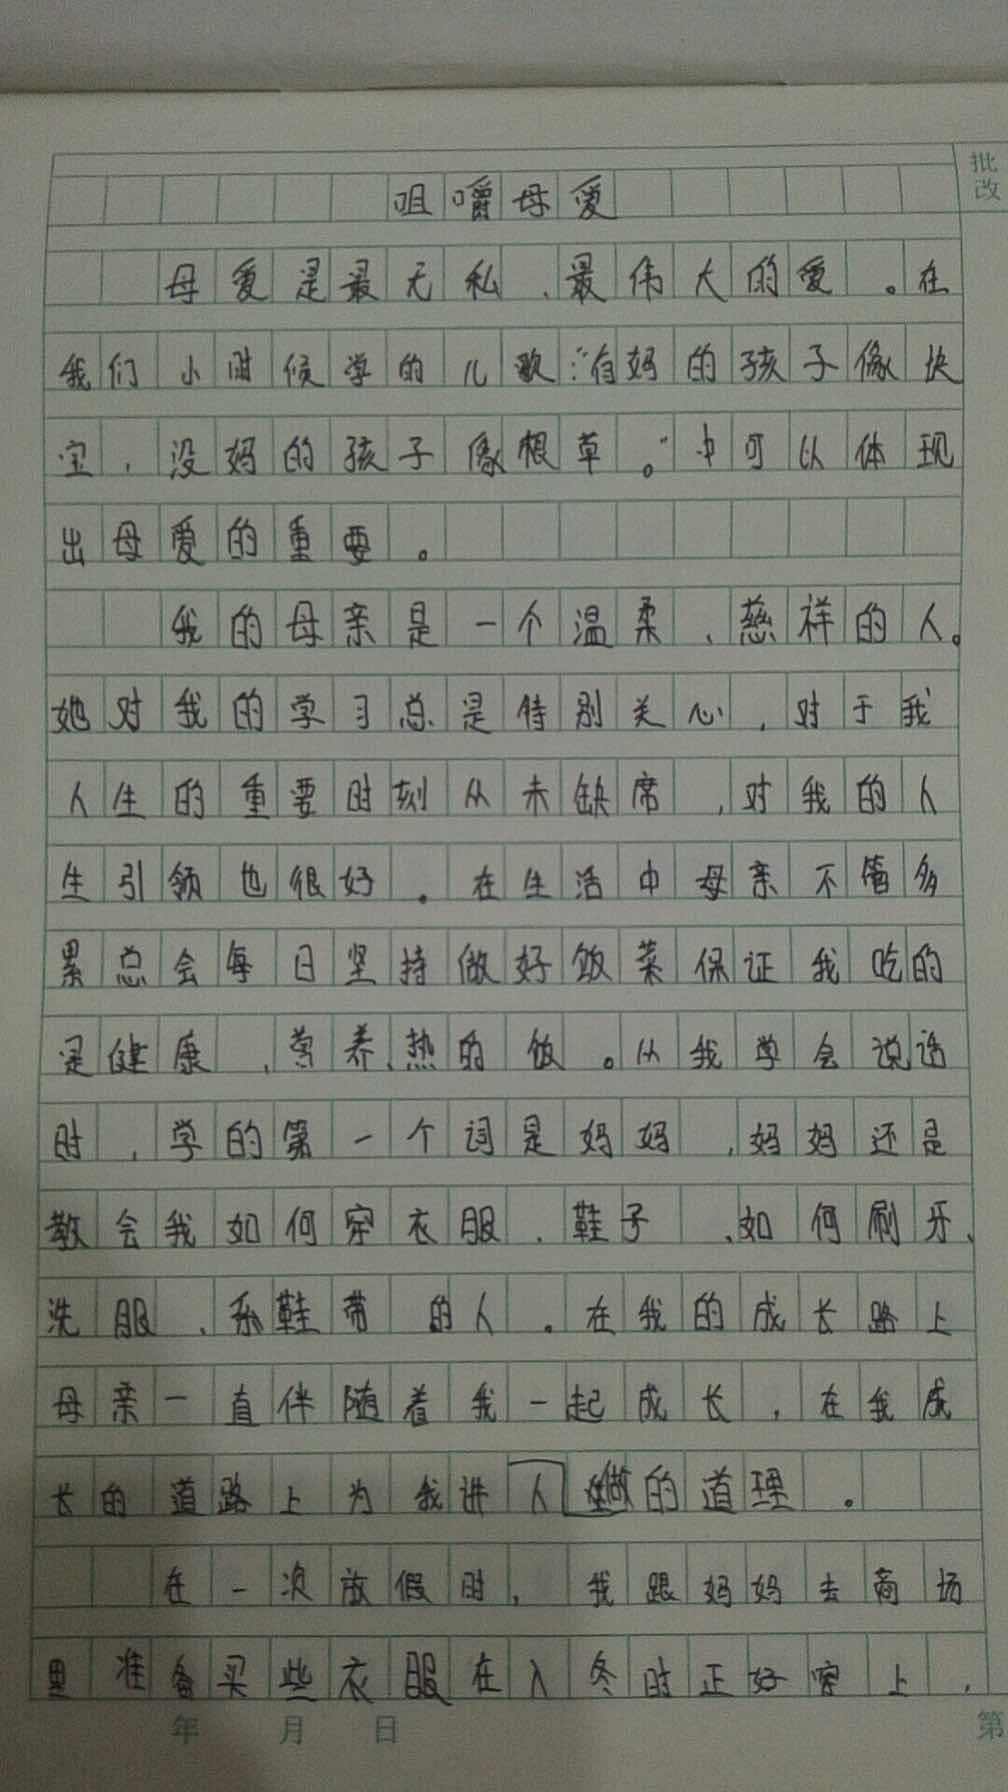 批改
咀嚼母爱
母爱是最无私、最伟大的爱。在
我们小时候学的儿歌:“有妈的孩子像块
宝,没妈的孩子像根草。”中可以体现
出母爱的重要。
我的母亲是一个温柔、慈祥的人。
她对我的学习总是特别关心,对于我
人生的重要时刻从未缺席,对我的人
生引领也很好。在生活中母亲不管多
累总会每日坚持做好饭菜保证我吃的
是健康、营养、热的饭。从我学会说话
时,学的第一个词是妈妈,妈妈还是
教会我如何穿衣服、鞋子、如何刷牙、
洗服、系鞋带的人。在我的成长路上
母亲一直伴随着我一起成长,在我成
长的道路上为我讲人做的道理。
在一次放假时,我跟妈妈去商场
里准备买些衣服在入冬时正好穿上,
年 月 日
第